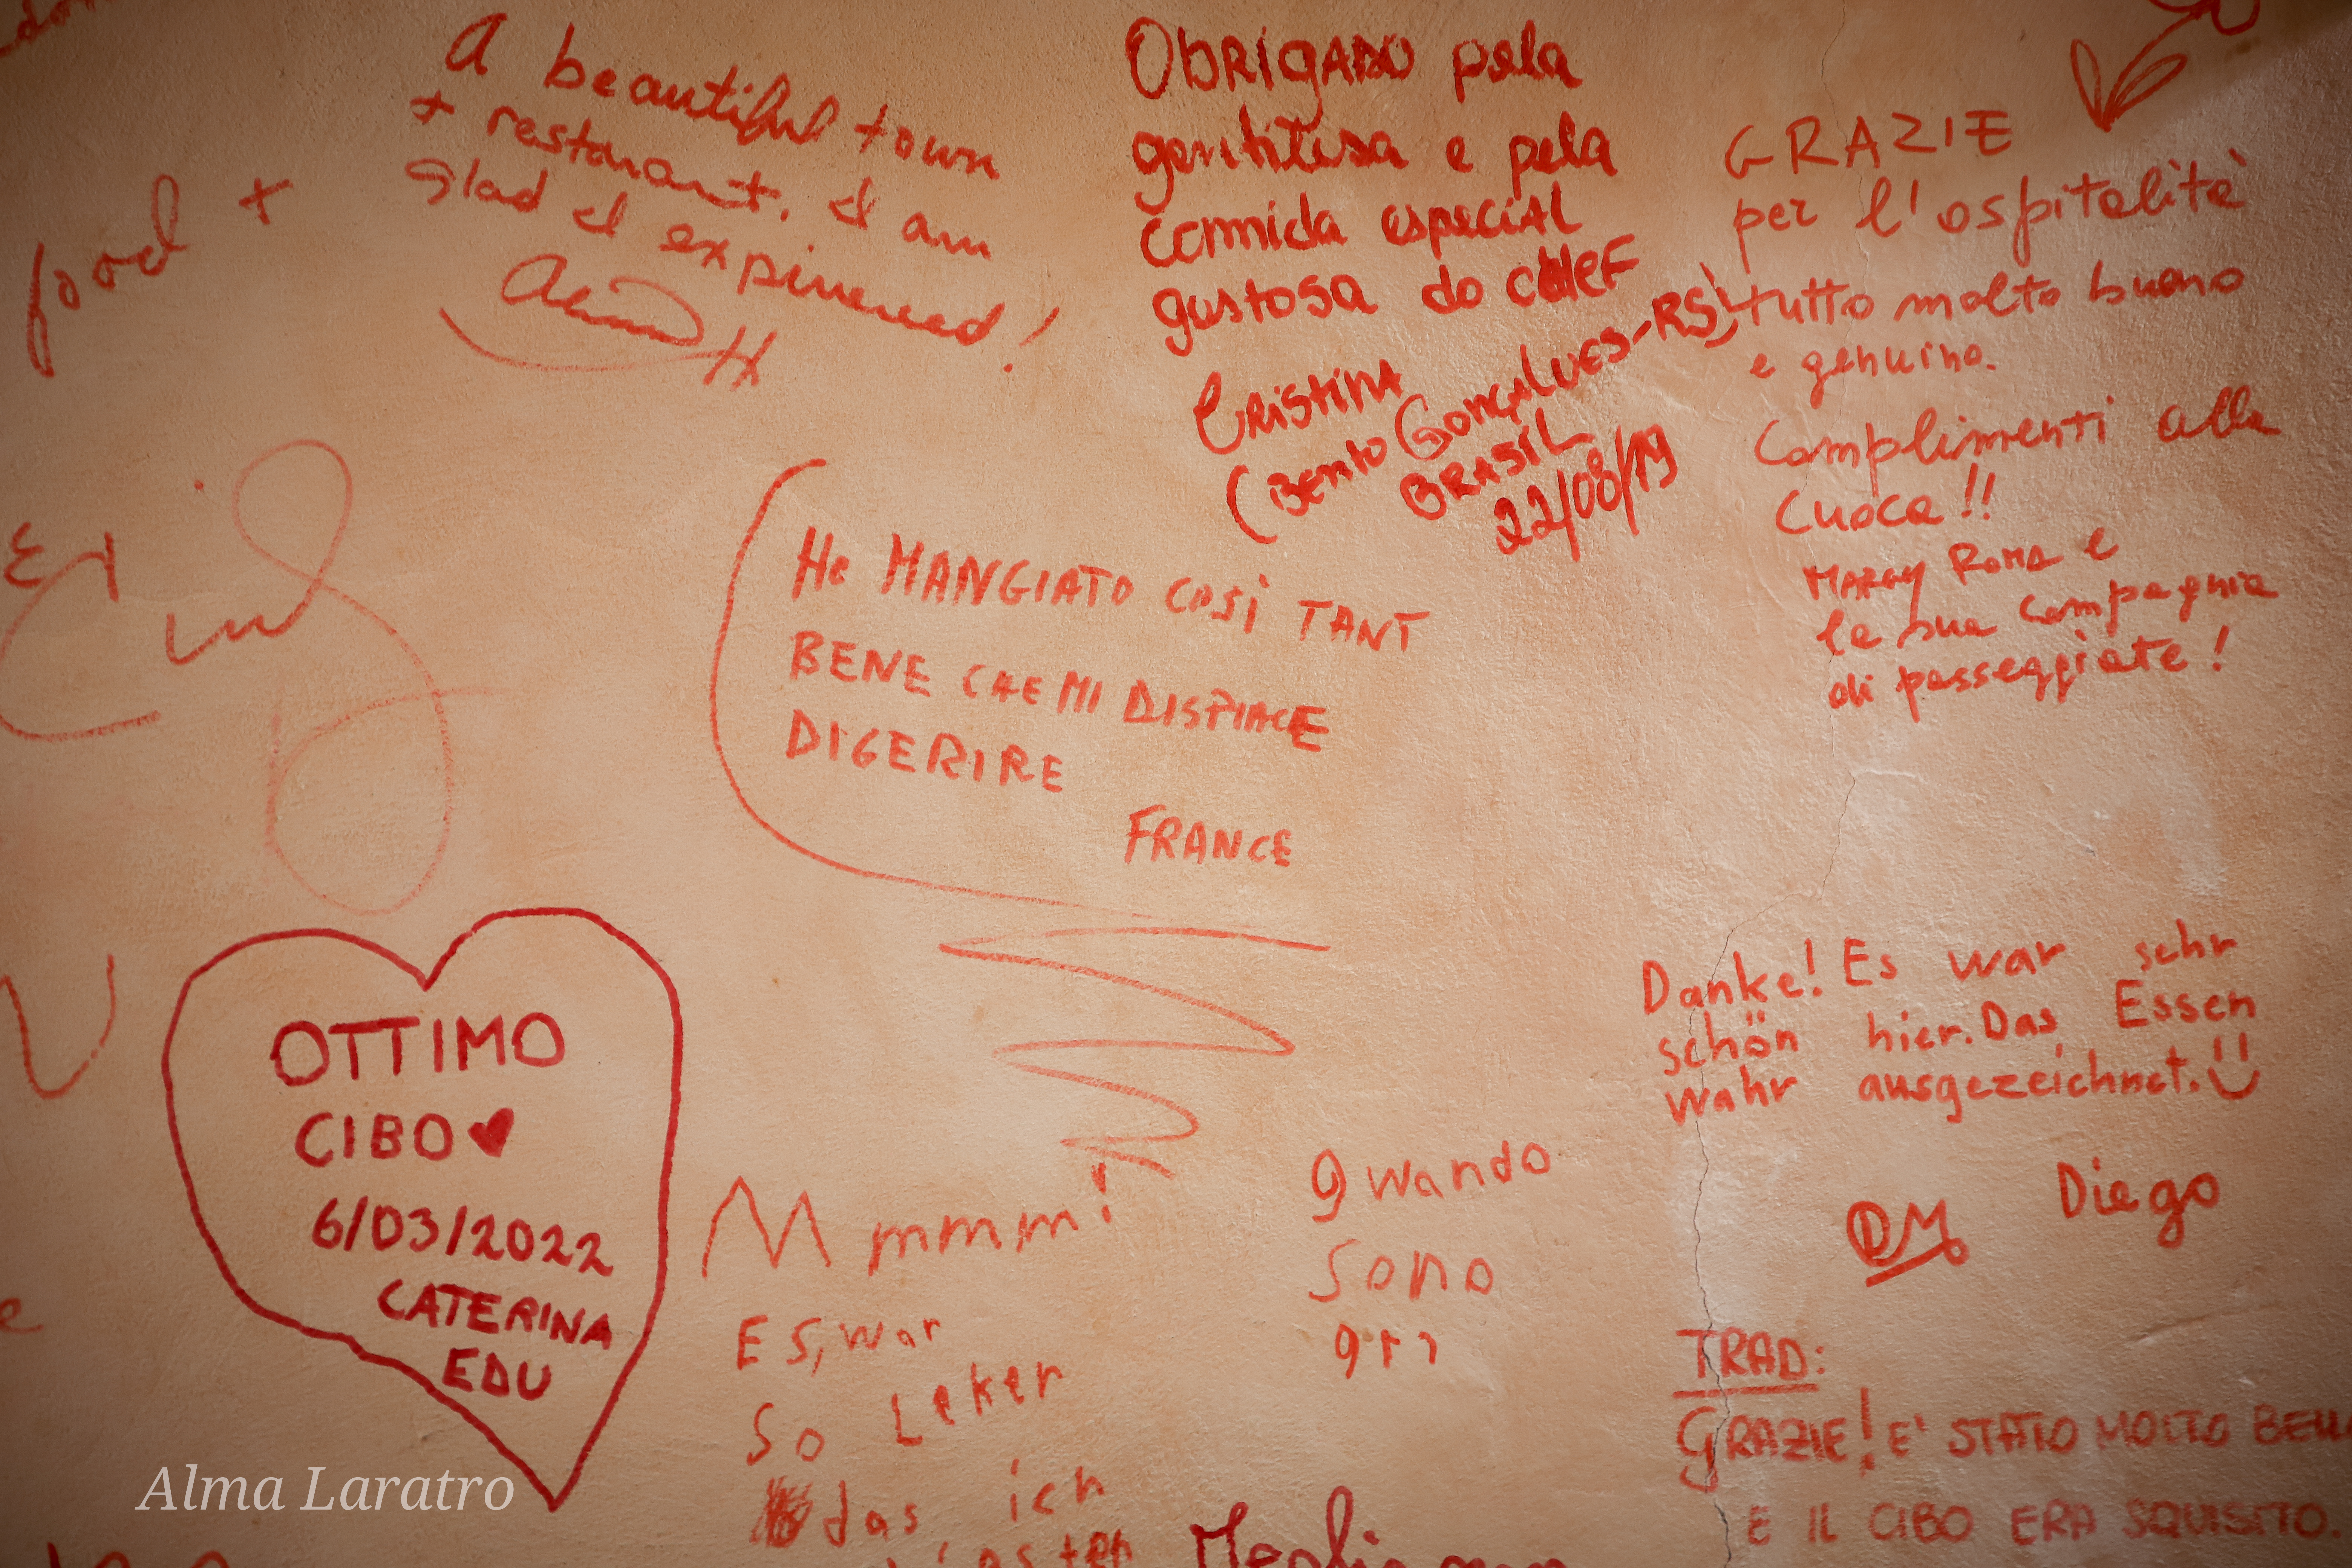 food +
A beautiful town
+ restaurant. I am
glad I expirienced!
OBRIGADO pela
gentilesa e pela
comida especial
gustosa do chef
CRISTINA
(Bento Gonçalves-RS)
BRASIL
22/08/19
GRAZIE
per l'ospitalità
tutto molto buono
e genuino.
Complimenti alla
Cuoca!!
MARGY ROMA e
la sua compagnia
di passeggiate!
Ho MANGIATO COSì TANT
BENE CHE MI DISPIACE
DIGERIRE
FRANCE
OTTIMO
CIBO ♥
6/03/2022
CATERINA
EDU
Mmmmm!
Es, war
so Leker
das ich
gwando
sono
gri
Danke! Es war sehr
schön hier. Das Essen
wahr ausgezeichnet.
DM Diego
TRAD:
GRAZIE! E' STATO MOLTO BELL
E IL CIBO ERA SQUISITO.
Alma Laratro